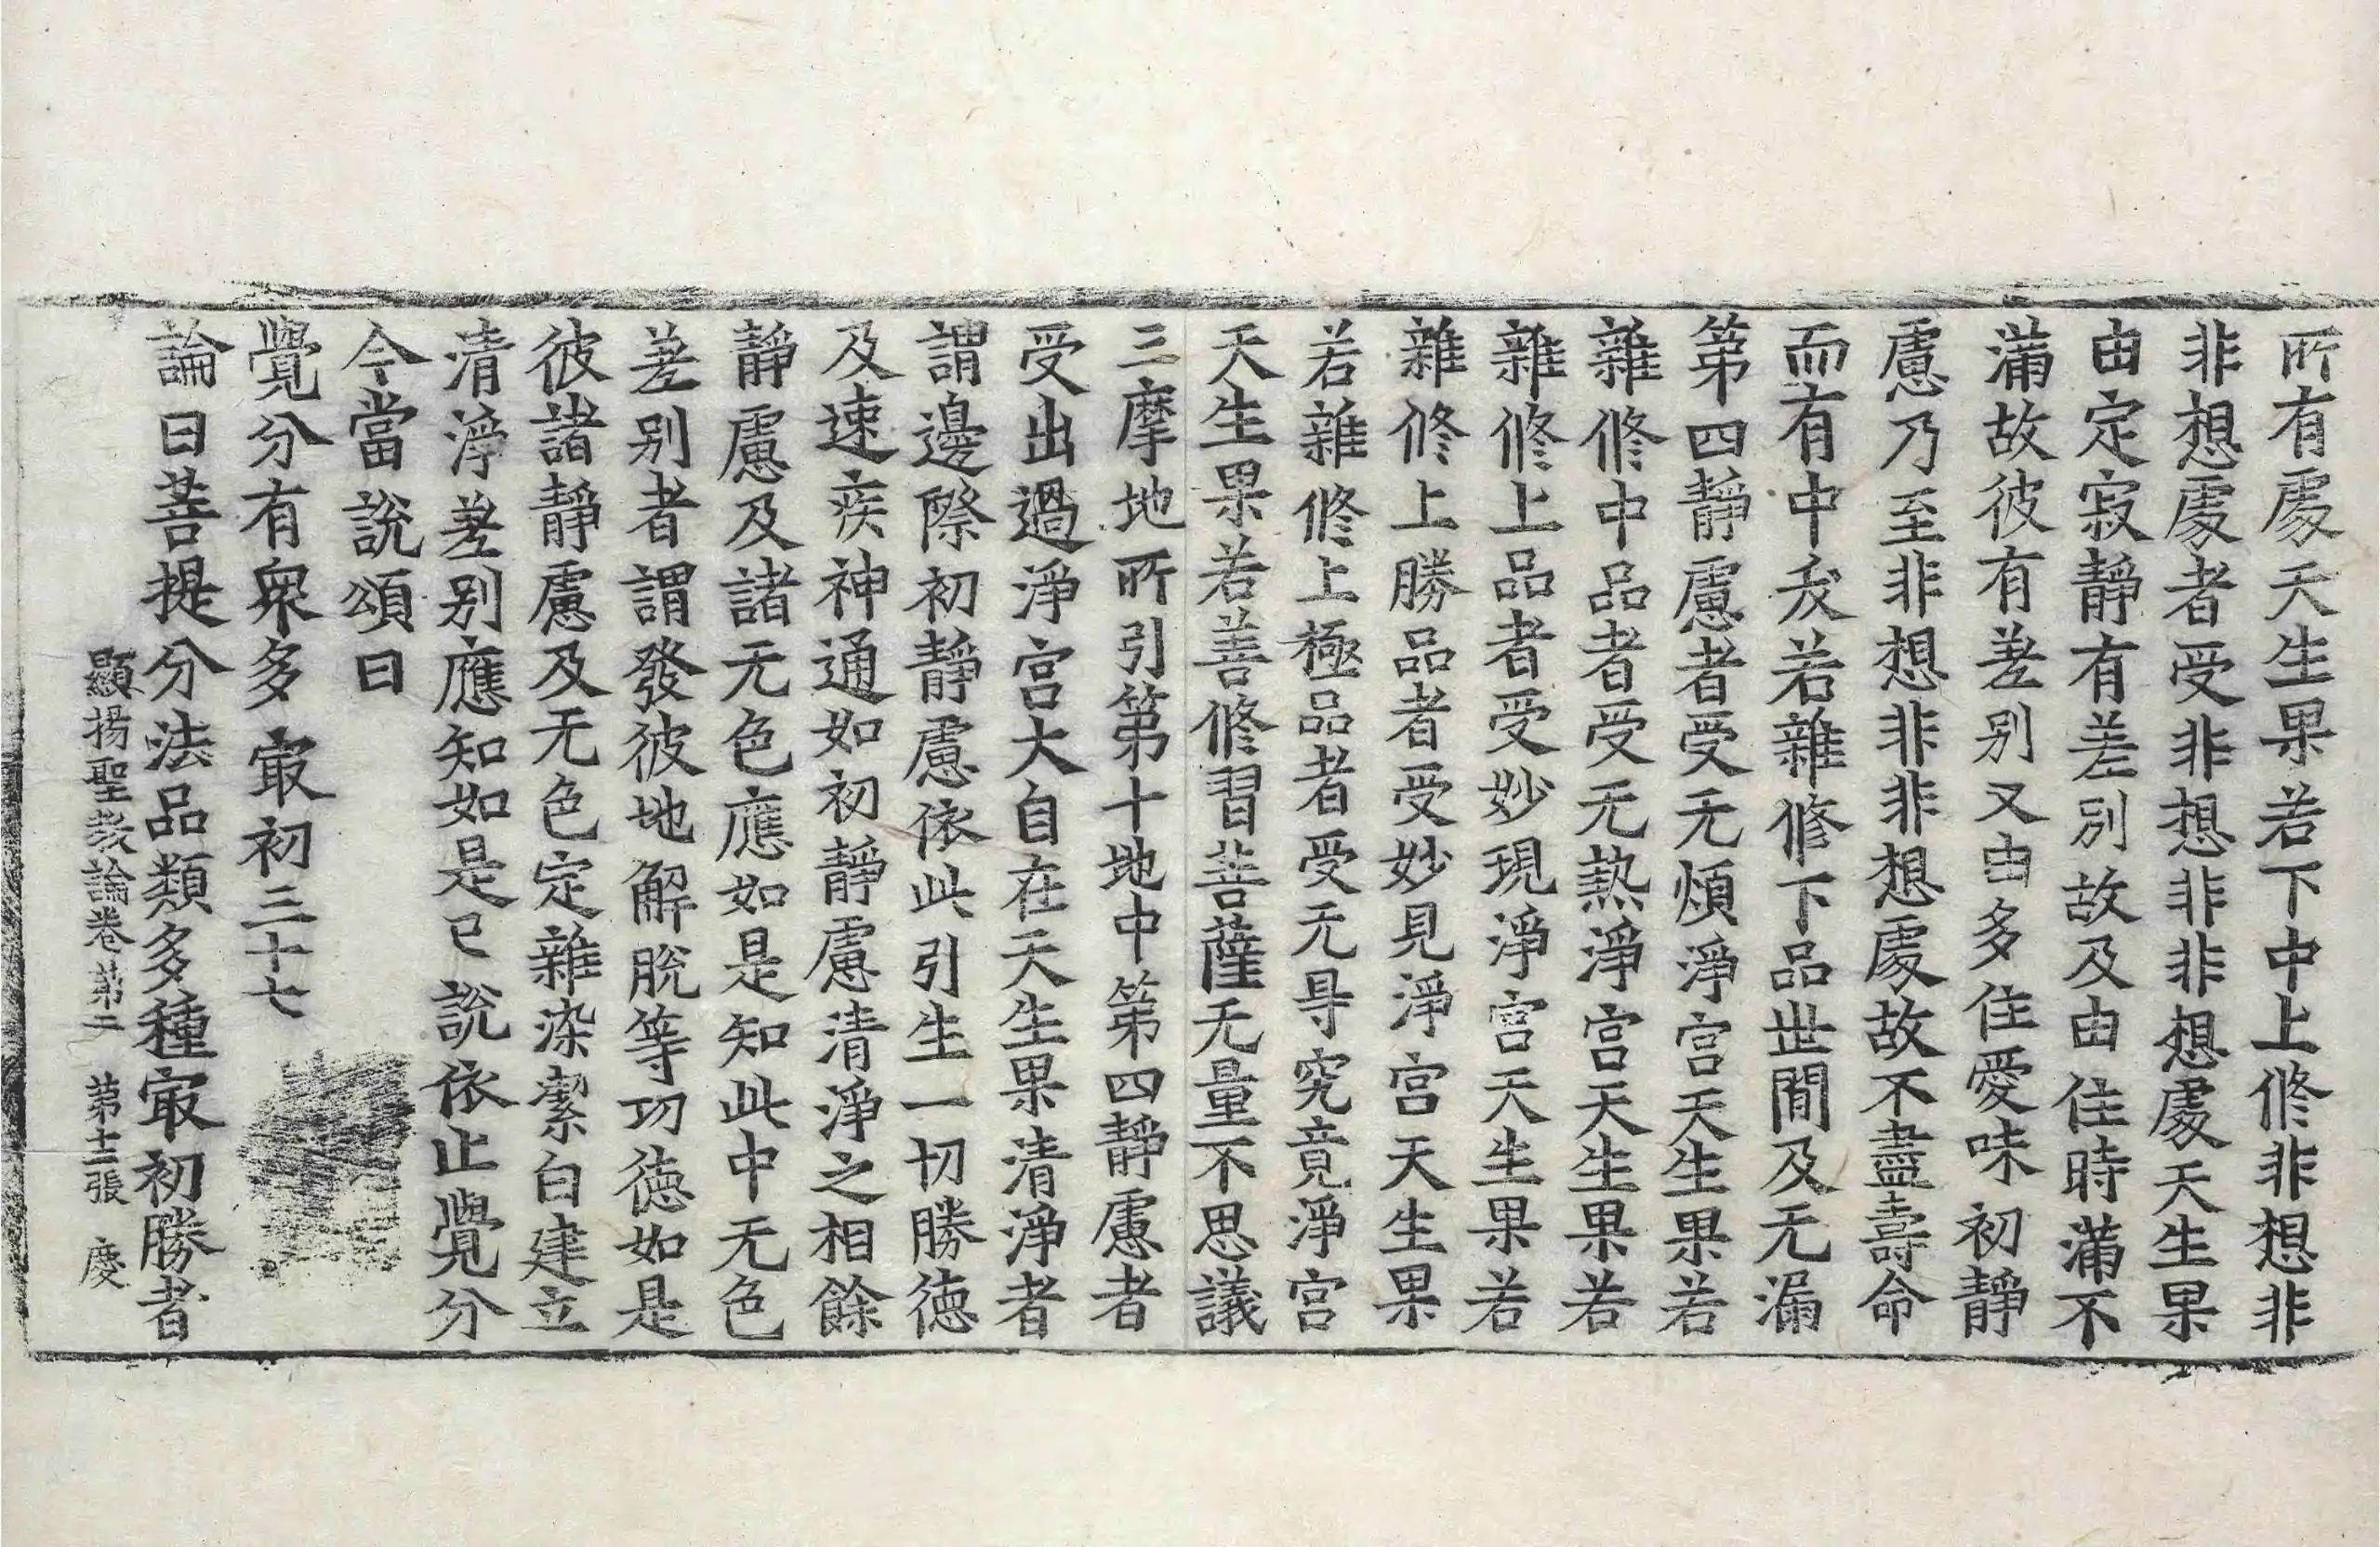 所有處天生果若下中上修非想非
非想處者受非想非非想處天生果
由定寂靜有差別故及由住時滿不
滿故彼有差別又由多住愛味初靜
慮乃至非想非非想處故不盡壽命
而有中夭若雜修下品世間及无漏
第四靜慮者受无煩淨宮天生果若
雜修中品者受无熱淨宮天生果若
雜修上品者受妙現淨宮天生果若
雜修上勝品者受妙見淨宮天生果
若雜修上極品者受无㝵究竟淨宮
天生果若善修習菩薩无量不思議
三摩地所引第十地中第四靜慮者
受出過淨宮大自在天生果清淨者
謂邊際初靜慮依此引生一切勝德
及速疾神通如初靜慮清淨之相餘
靜慮及諸无色應如是知此中无色
差別者謂發彼地解脫等功德如是
彼諸靜慮及无色定雜染潔白建立
清淨差別應知如是已說依止覺分
今當說頌曰
覺分有衆多 㝡初三十七
論曰菩提分法品類多種㝡初勝者
顯揚聖教論卷第二 第十二張 慶